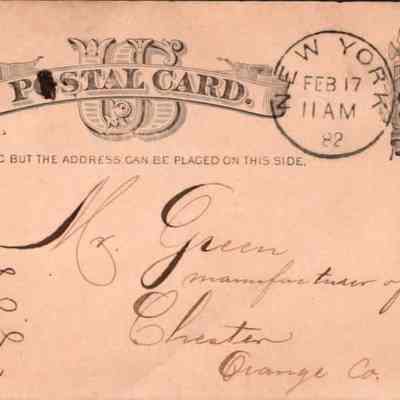 US
POSTAL CARD.
NEW YORK
FEB 17
11 AM
82
BUT THE ADDRESS CAN BE PLACED ON THIS SIDE.
Mr. Green
manufacturer of
Chester
Orange Co.